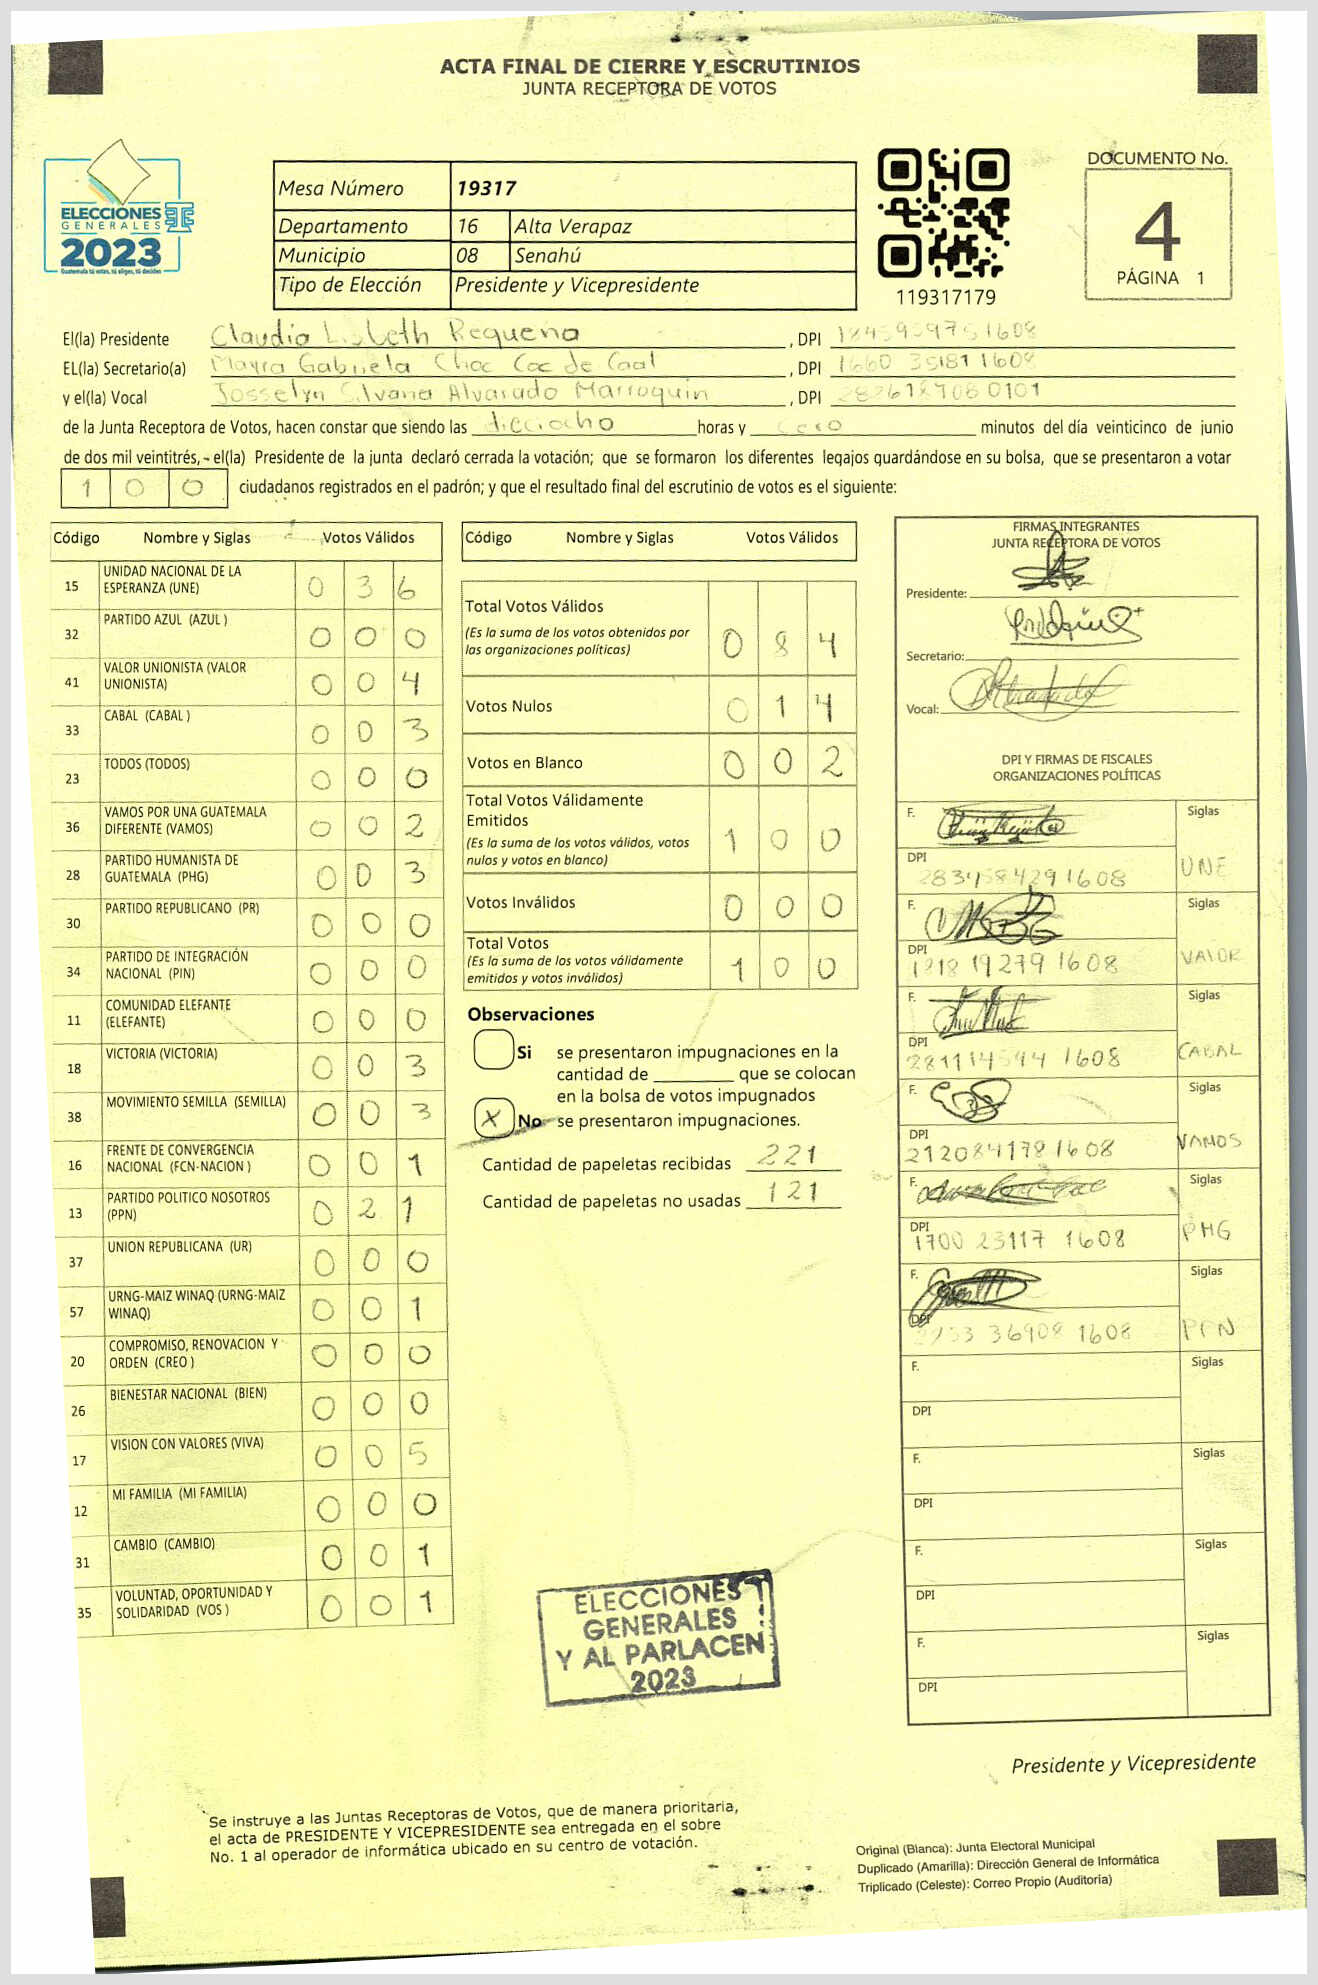 ACTA FINAL DE CIERRE Y ESCRUTINIOS
JUNTA RECEPTORA DE VOTOS
ELECCIONES
GENERALES
2023
Guatemala tú votas, tú eliges, tú decides
Mesa Número 19317
Departamento 16 Alta Verapaz
Municipio 08 Senahú
Tipo de Elección Presidente y Vicepresidente
119317179
DOCUMENTO No.
4
PÁGINA 1
El(la) Presidente Claudia Lisbeth Requena, DPI
EL(la) Secretario(a) Mayra Gabriela Choc Coc de Caal, DPI 1660 35181 1608
y el(la) Vocal Josselyn Silvana Alvarado Marroquin, DPI
de la Junta Receptora de Votos, hacen constar que siendo las dieciocho horas y cero minutos del día veinticinco de junio
de dos mil veintitrés, el(la) Presidente de la junta declaró cerrada la votación; que se formaron los diferentes legajos guardándose en su bolsa, que se presentaron a votar
1 0 0 ciudadanos registrados en el padrón; y que el resultado final del escrutinio de votos es el siguiente:
Código Nombre y Siglas Votos Válidos
15 UNIDAD NACIONAL DE LA ESPERANZA (UNE) 0 3 6
32 PARTIDO AZUL (AZUL ) 0 0 0
41 VALOR UNIONISTA (VALOR UNIONISTA) 0 0 4
33 CABAL (CABAL ) 0 0 3
23 TODOS (TODOS) 0 0 0
36 VAMOS POR UNA GUATEMALA DIFERENTE (VAMOS) 0 0 2
28 PARTIDO HUMANISTA DE GUATEMALA (PHG) 0 0 3
30 PARTIDO REPUBLICANO (PR) 0 0 0
34 PARTIDO DE INTEGRACIÓN NACIONAL (PIN) 0 0 0
11 COMUNIDAD ELEFANTE (ELEFANTE) 0 0 0
18 VICTORIA (VICTORIA) 0 0 3
38 MOVIMIENTO SEMILLA (SEMILLA) 0 0 3
16 FRENTE DE CONVERGENCIA NACIONAL (FCN-NACION ) 0 0 1
13 PARTIDO POLITICO NOSOTROS (PPN) 0 2 1
37 UNION REPUBLICANA (UR) 0 0 0
57 URNG-MAIZ WINAQ (URNG-MAIZ WINAQ) 0 0 1
20 COMPROMISO, RENOVACION Y ORDEN (CREO ) 0 0 0
26 BIENESTAR NACIONAL (BIEN) 0 0 0
17 VISION CON VALORES (VIVA) 0 0 5
12 MI FAMILIA (MI FAMILIA) 0 0 0
31 CAMBIO (CAMBIO) 0 0 1
35 VOLUNTAD, OPORTUNIDAD Y SOLIDARIDAD (VOS ) 0 0 1
Código Nombre y Siglas Votos Válidos
Total Votos Válidos 0 8 4
(Es la suma de los votos obtenidos por
las organizaciones políticas)
Votos Nulos 0 1 4
Votos en Blanco 0 0 2
Total Votos Válidamente
Emitidos 1 0 0
(Es la suma de los votos válidos, votos
nulos y votos en blanco)
Votos Inválidos 0 0 0
Total Votos 1 0 0
(Es la suma de los votos válidamente
emitidos y votos inválidos)
Observaciones
Si se presentaron impugnaciones en la
cantidad de ________ que se colocan
en la bolsa de votos impugnados
X No se presentaron impugnaciones.
Cantidad de papeletas recibidas 221
Cantidad de papeletas no usadas 121
FIRMAS INTEGRANTES
JUNTA RECEPTORA DE VOTOS
Presidente:
Secretario:
Vocal:
DPI Y FIRMAS DE FISCALES
ORGANIZACIONES POLÍTICAS
F. Siglas
DPI UNE
F. Siglas
DPI VALOR
F. Siglas
DPI CABAL
F. Siglas
DPI VAMOS
212084178 1608
F. Siglas
DPI PHG
1700 23117 1608
F. Siglas
DPI PPN
F. Siglas
DPI
F. Siglas
DPI
F. Siglas
DPI
F. Siglas
DPI
ELECCIONES
GENERALES
Y AL PARLACEN
2023
Presidente y Vicepresidente
Se instruye a las Juntas Receptoras de Votos, que de manera prioritaria,
el acta de PRESIDENTE Y VICEPRESIDENTE sea entregada en el sobre
No. 1 al operador de informática ubicado en su centro de votación.
Original (Blanca): Junta Electoral Municipal
Duplicado (Amarilla): Dirección General de Informática
Triplicado (Celeste): Correo Propio (Auditoría)